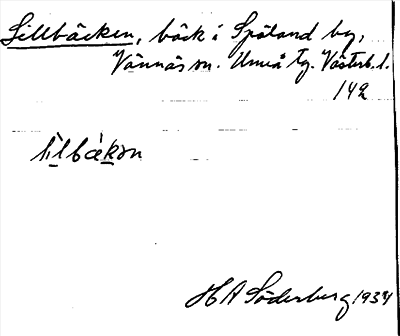 Sillbäcken, bäck i Spöland by,
Vännäs sn. Umeå tg. Västerb. l.
142
H A Söderberg 1934